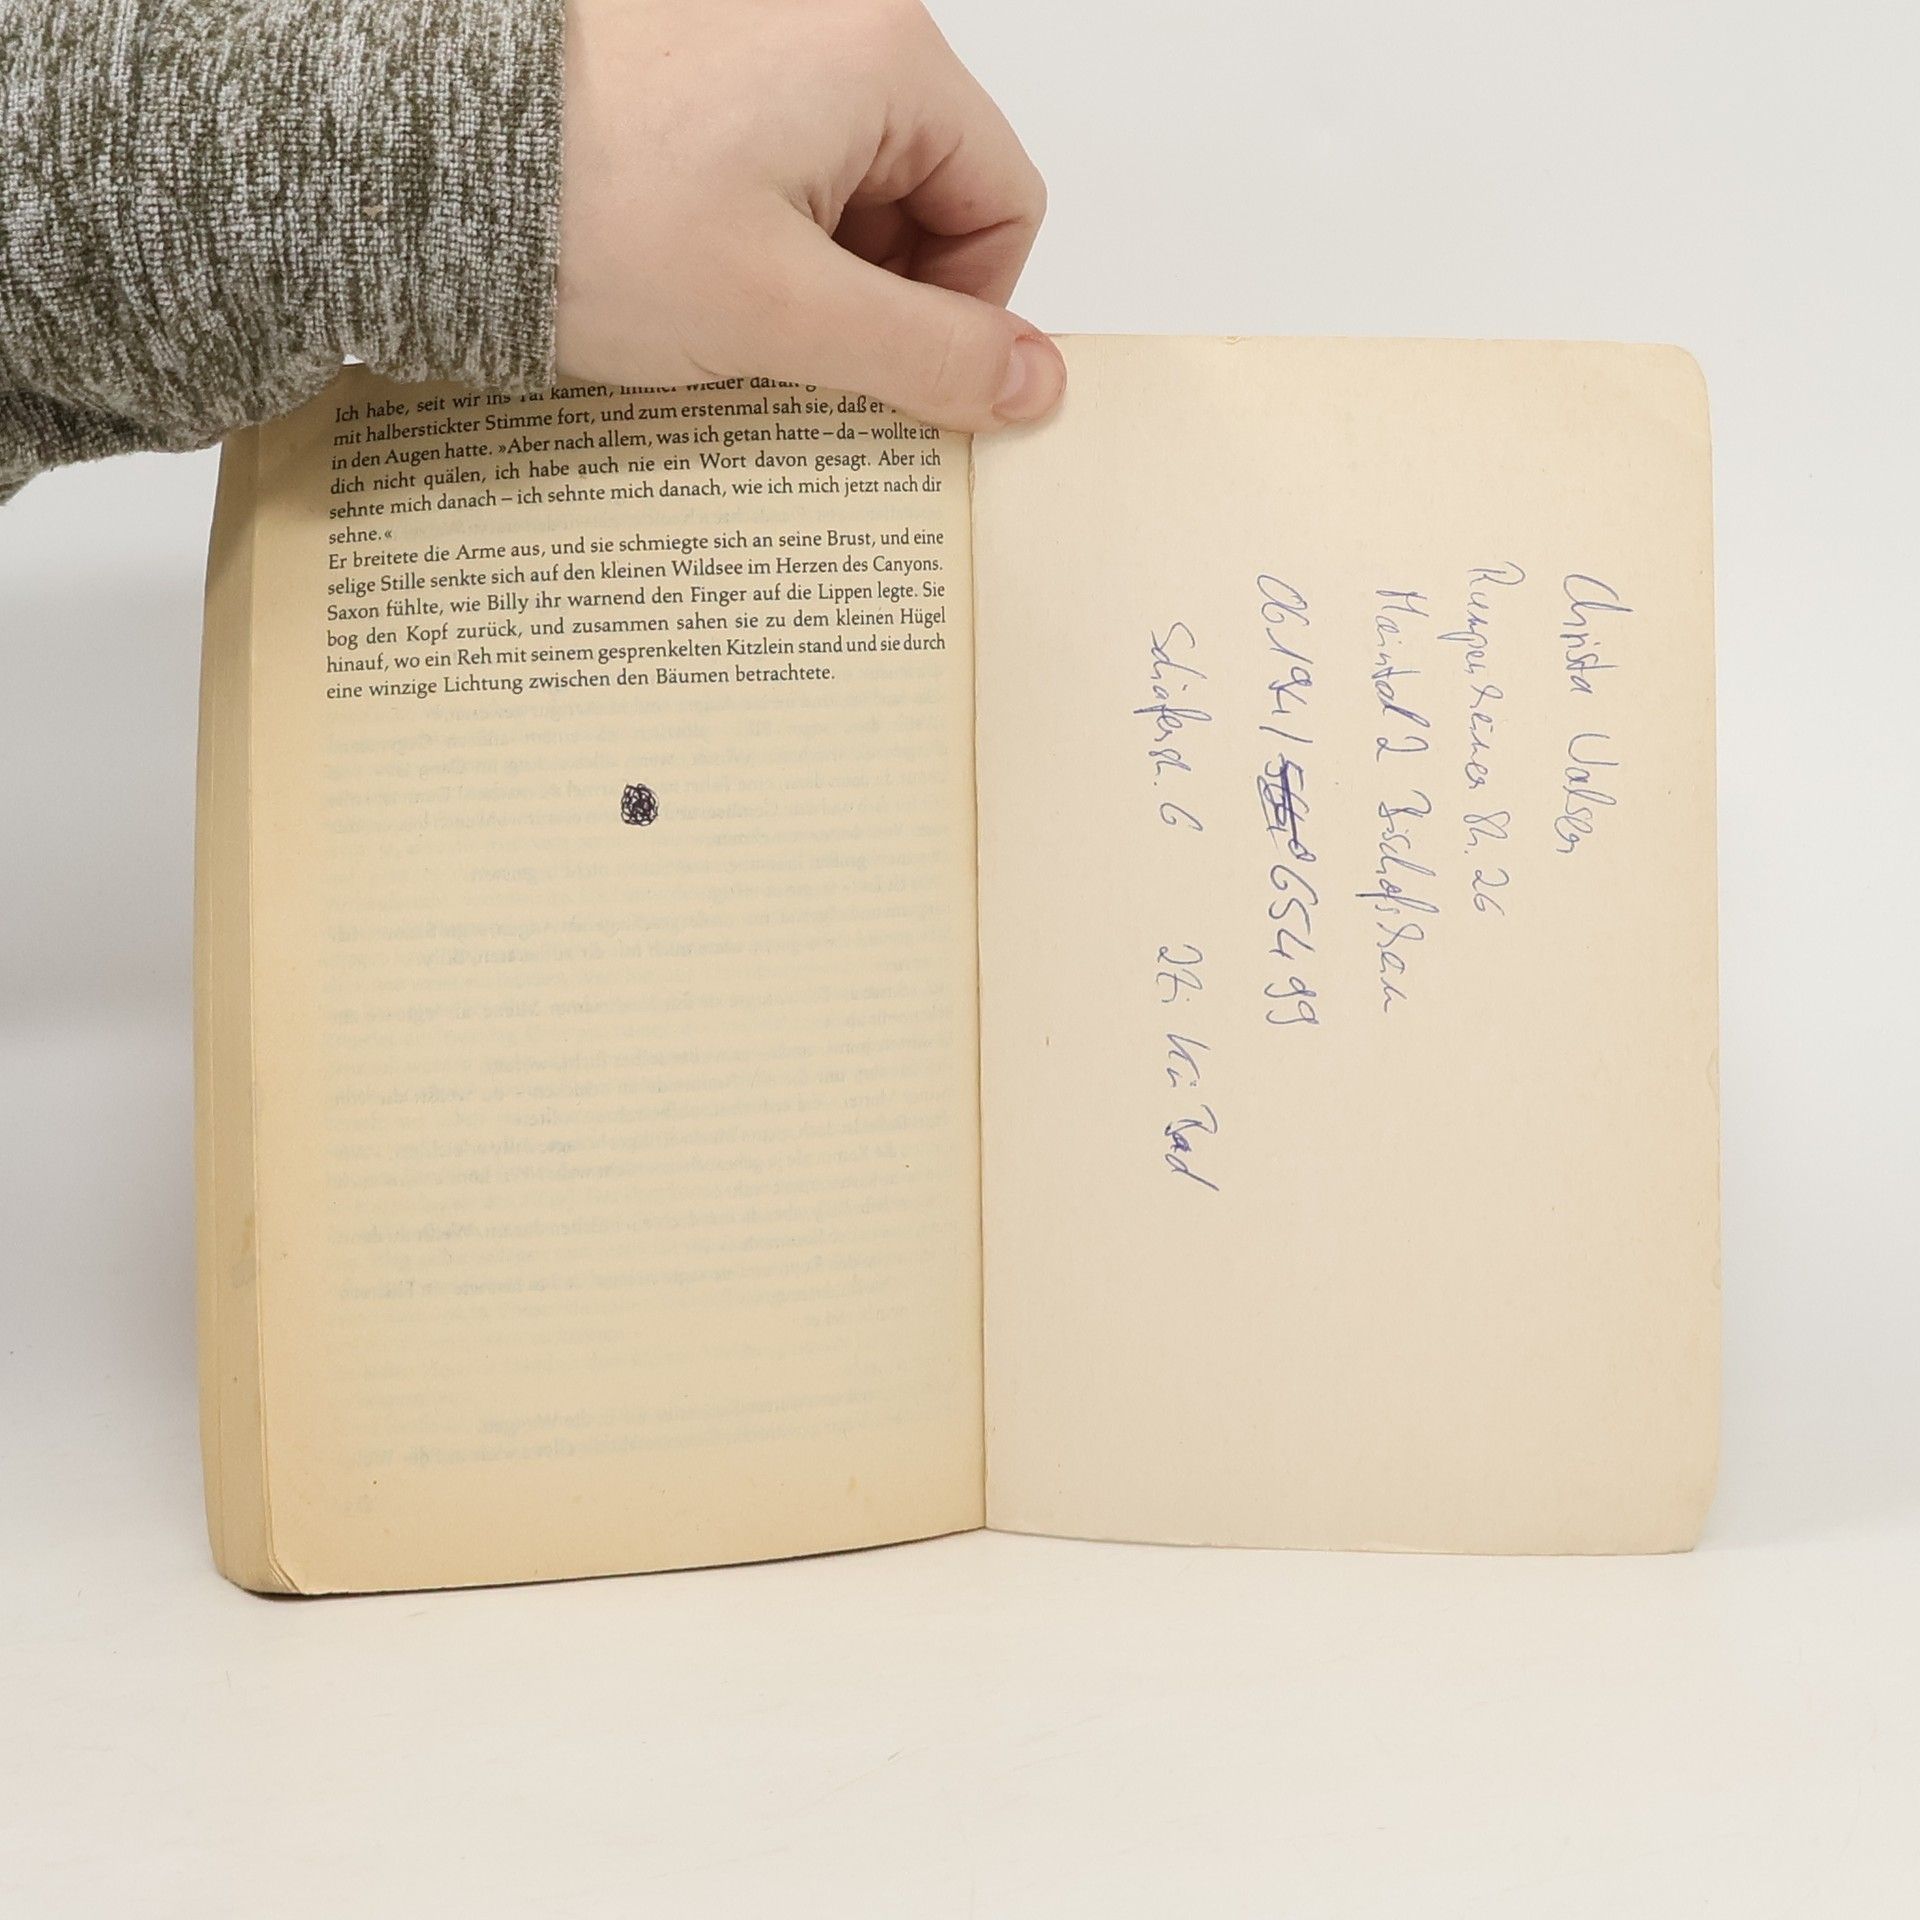 Ich habe, seit wir ins Tal kamen, immer wieder daran
mit halberstickter Stimme fort, und zum erstenmal sah sie, daß er
in den Augen hatte. »Aber nach allem, was ich getan hatte – da – wollte ich
dich nicht quälen, ich habe auch nie ein Wort davon gesagt. Aber ich
sehnte mich danach – ich sehnte mich danach, wie ich mich jetzt nach dir
sehne.«
Er breitete die Arme aus, und sie schmiegte sich an seine Brust, und eine
selige Stille senkte sich auf den kleinen Wildsee im Herzen des Canyons.
Saxon fühlte, wie Billy ihr warnend den Finger auf die Lippen legte. Sie
bog den Kopf zurück, und zusammen sahen sie zu dem kleinen Hügel
hinauf, wo ein Reh mit seinem gesprenkelten Kitzlein stand und sie durch
eine winzige Lichtung zwischen den Bäumen betrachtete.
Christa
Str. 26
Maintal 2 Bischofsheim
06194 / 65499
Schäferstr. 6 2 Zi Kü Bad